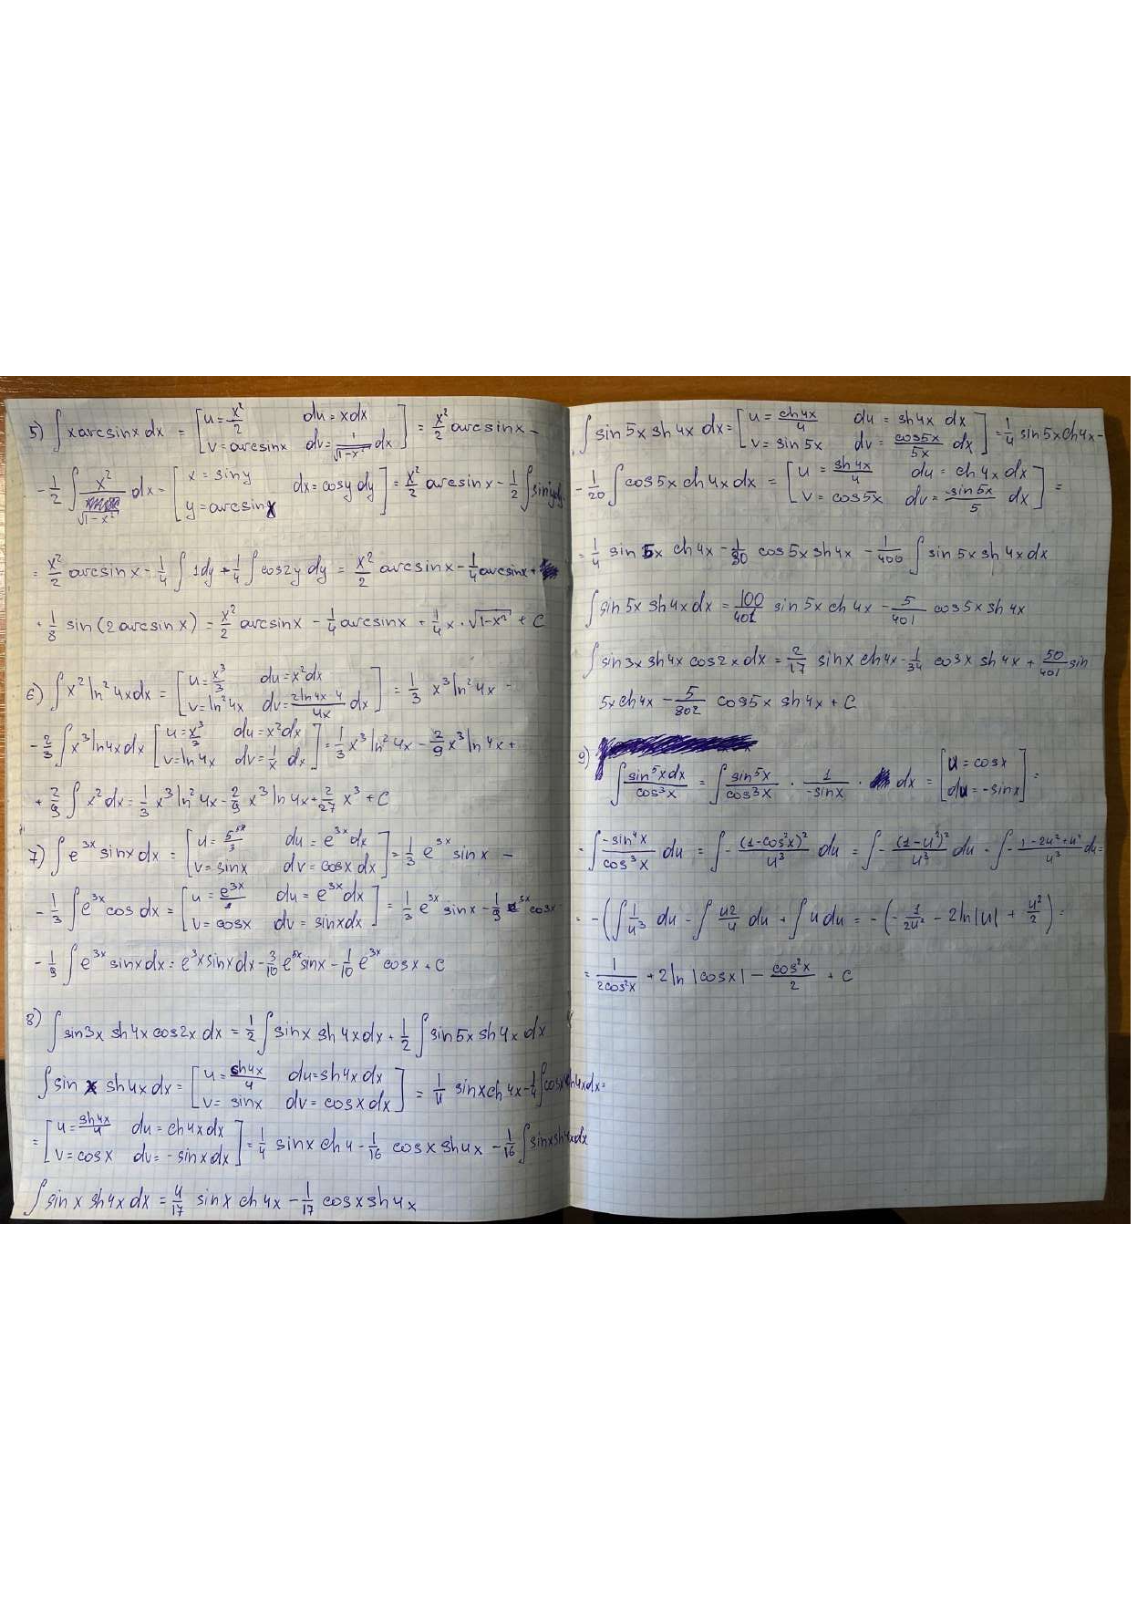 5) ∫ x arcsinx dx = [u = x²/2 du = xdx v = arcsinx dv = 1/√(1-x²) dx] = x²/2 arcsinx -
- 1/2 ∫ x²/√(1-x²) dx = [x = siny dx = cosy dy y = arcsinx] = x²/2 arcsinx - 1/2 ∫ sin²y dy
= x²/2 arcsinx - 1/4 ∫ 1dy + 1/4 ∫ cos2y dy = x²/2 arcsinx - 1/4 arcsinx +
+ 1/8 sin(2arcsinx) = x²/2 arcsinx - 1/4 arcsinx + 1/4 x · √(1-x²) + C
6) ∫ x² ln² 4x dx = [u = x³/3 du = x²dx v = ln²4x dv = 2ln4x·4/4x dx] = 1/3 x³ ln² 4x -
- 2/3 ∫ x³ ln4x dx [u = x³/3 du = x²dx v = ln4x dv = 1/x dx] = 1/3 x³ ln² 4x - 2/9 x³ ln 4x +
+ 2/9 ∫ x² dx = 1/3 x³ ln² 4x - 2/9 x³ ln 4x + 2/27 x³ + C
7) ∫ e³ˣ sinx dx = [u = 5³ˣ/3 du = e³ˣ dx v = sinx dv = cosx dx] = 1/3 e³ˣ sinx -
- 1/3 ∫ e³ˣ cos dx = [u = e³ˣ du = e³ˣ dx v = cosx dv = sinx dx] = 1/3 e³ˣ sinx - 1/9 e³ˣ cosx -
- 1/9 ∫ e³ˣ sinx dx = e³x sinx dx - 3/10 e³ˣ sinx - 1/10 e³ˣ cosx + C
8) ∫ sin3x sh4x cos2x dx = 1/2 ∫ sinx sh4x dx + 1/2 ∫ sin5x sh4x dx
∫ sin x sh4x dx = [u = ch4x/4 du = sh4x dx v = sinx dv = cosx dx] = 1/4 sinx ch4x - 1/4 ∫ cosx ch4x dx =
= [u = sh4x/4 du = ch4x dx v = cosx dv = -sinx dx] = 1/4 sinx ch4 - 1/16 cosx sh4x - 1/16 ∫ sinx sh4x dx
∫ sin x sh4x dx = 4/17 sinx ch4x - 1/17 cosx sh4x
∫ sin5x sh4x dx = [u = ch4x/4 du = sh4x dx v = sin5x dv = cos5x/5x dx] = 1/4 sin5x ch4x -
- 1/20 ∫ cos5x ch4x dx = [u = sh4x/4 du = ch4x dx v = cos5x dv = -sin5x/5 dx] =
= 1/4 sin 5x ch4x - 1/80 cos5x sh4x - 1/400 ∫ sin5x sh4x dx
∫ sin5x sh4x dx = 100/401 sin5x ch4x - 5/401 cos5x sh4x
∫ sin3x sh4x cos2x dx = 2/17 sinx ch4x - 1/34 cosx sh4x + 50/401 sin
5x ch4x - 5/802 cos5x sh4x + C
9)
∫ sin⁵x dx/cos³x = ∫ sin⁵x/cos³x · 1/-sinx · dx = [u = cosx du = -sinx] =
= ∫ -sin⁴x/cos³x du = ∫ - (1-cos²x)²/u³ du = ∫ - (1-u²)²/u³ du = ∫ - 1-2u²+u⁴/u³ du =
= -(∫ 1/u³ du - ∫ u2/u du + ∫ u du = -(- 1/2u² - 2ln|u| + u²/2) =
= 1/2cos²x + 2ln|cosx| - cos²x/2 + C